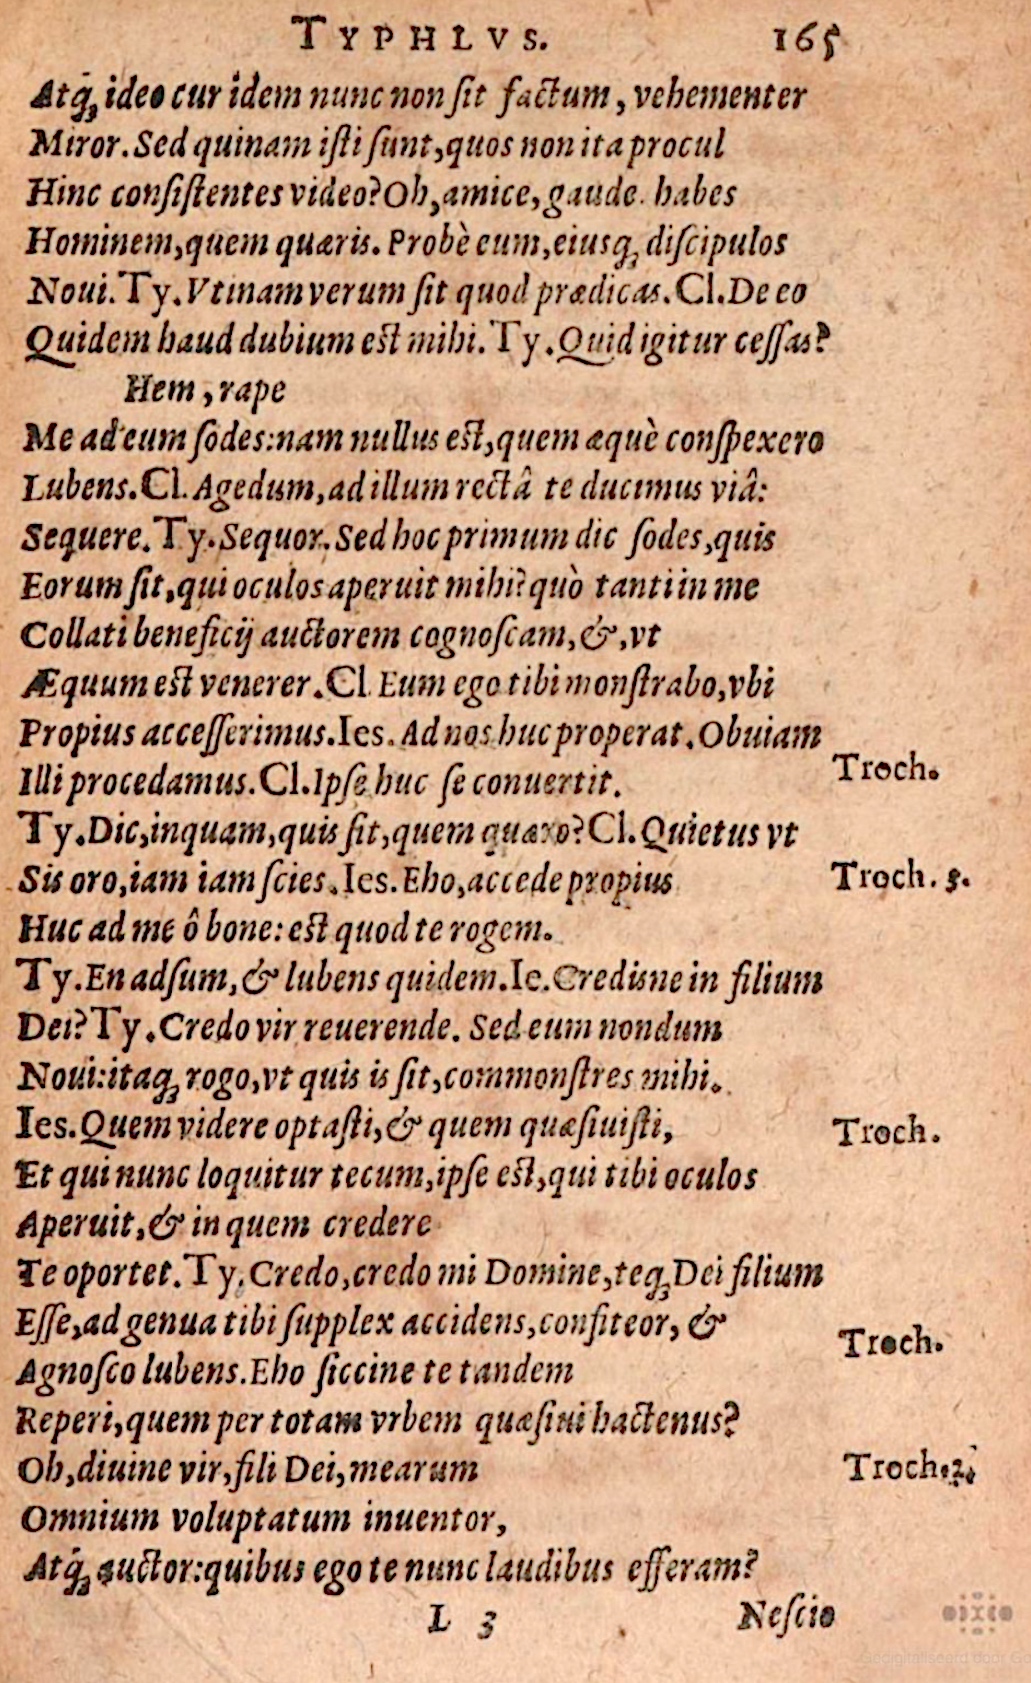 TYPHLVS. 165
Atq́ꝫ ideo cur idem nunc non ſit factum, vehementer
Miror. Sed quinam iſti ſunt, quos non ita procul
Hinc conſiſtentes video? Oh, amice, gaude. habes
Hominem, quem quæris. Probè eum, eiusqꝫ diſcipulos
Noui. Ty. Vtinam verum ſit quod prædicas. Cl. De eo
Quidem haud dubium eſt mihi. Ty. Quid igitur ceſſas?
Hem, rape
Me ad eum ſodes: nam nullus eſt, quem æquè conſpexero
Lubens. Cl. Agedum, ad illum rectâ te ducimus viâ:
Sequere. Ty. Sequor. Sed hoc primum dic ſodes, quis
Eorum ſit, qui oculos aperuit mihi? quò tanti in me
Collati beneficij auctorem cognoſcam, &, vt
Æquum eſt venerer. Cl. Eum ego tibi monſtrabo, vbi
Propius acceſſerimus. Ies. Ad nos huc properat. Obuiam
Illi procedamus. Cl. Ipſe huc ſe conuertit. Troch.
Ty. Dic, inquam, quis ſit, quem quæro? Cl. Quietus vt
Sis oro, iam iam ſcies. Ies. Eho, accede propius Troch. 5.
Huc ad me ô bone: eſt quod te rogem.
Ty. En adſum, & lubens quidem. Ie. Credisne in filium
Dei? Ty. Credo vir reuerende. Sed eum nondum
Noui: itaqꝫ rogo, vt quis is ſit, commonſtres mihi.
Ies. Quem videre optaſti, & quem quæſiuiſti, Troch.
Et qui nunc loquitur tecum, ipſe eſt, qui tibi oculos
Aperuit, & in quem credere
Te oportet. Ty. Credo, credo mi Domine, teqꝫ Dei filium
Eſſe, ad genua tibi ſupplex accidens, confiteor, & Troch.
Agnoſco lubens. Eho ſiccine te tandem
Reperi, quem per totam vrbem quæſiui hactenus?
Oh, diuine vir, fili Dei, mearum Troch. 2.
Omnium voluptatum inuentor,
Atq́ꝫ auctor: quibus ego te nunc laudibus efferam?
L 3 Neſcio